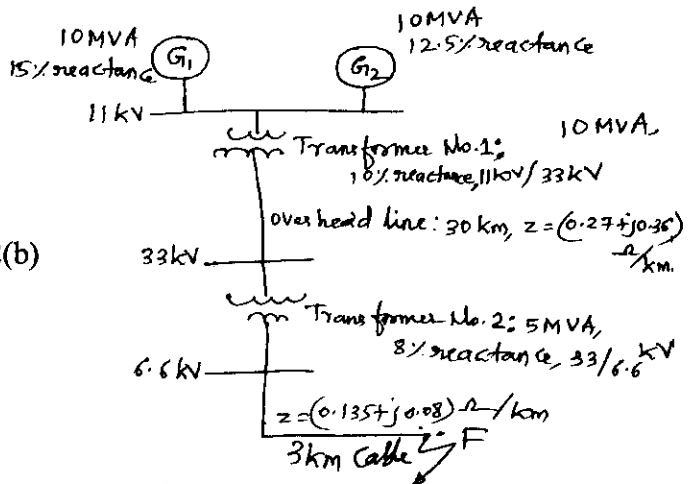 10MVA
15% reactance
G1
10MVA
12.5% reactance
G2
11kV
Transformer No.1:
10MVA,
10% reactance, 11kV/33kV
overhead line: 30km, z=(0.27+j0.36)
Ω/km.
(b)
33kV
Transformer No.2: 5MVA,
8% reactance, 33/6.6kV
6.6kV
z=(0.135+j0.08) Ω/km
F
3km Cable